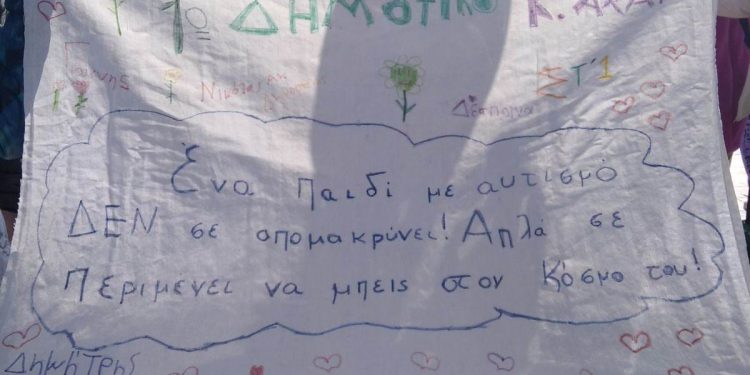 1ο ΔΗΜΟΤΙΚΟ Κ. ΑΧΑΪ
Γιάννης
ΣΤ'1
Δέσποινα
Ένα παιδί με αυτισμό
ΔΕΝ σε απομακρύνει! Απλά σε
Περιμενει να μπεις στον Κόσμο του!
Δημήτρης